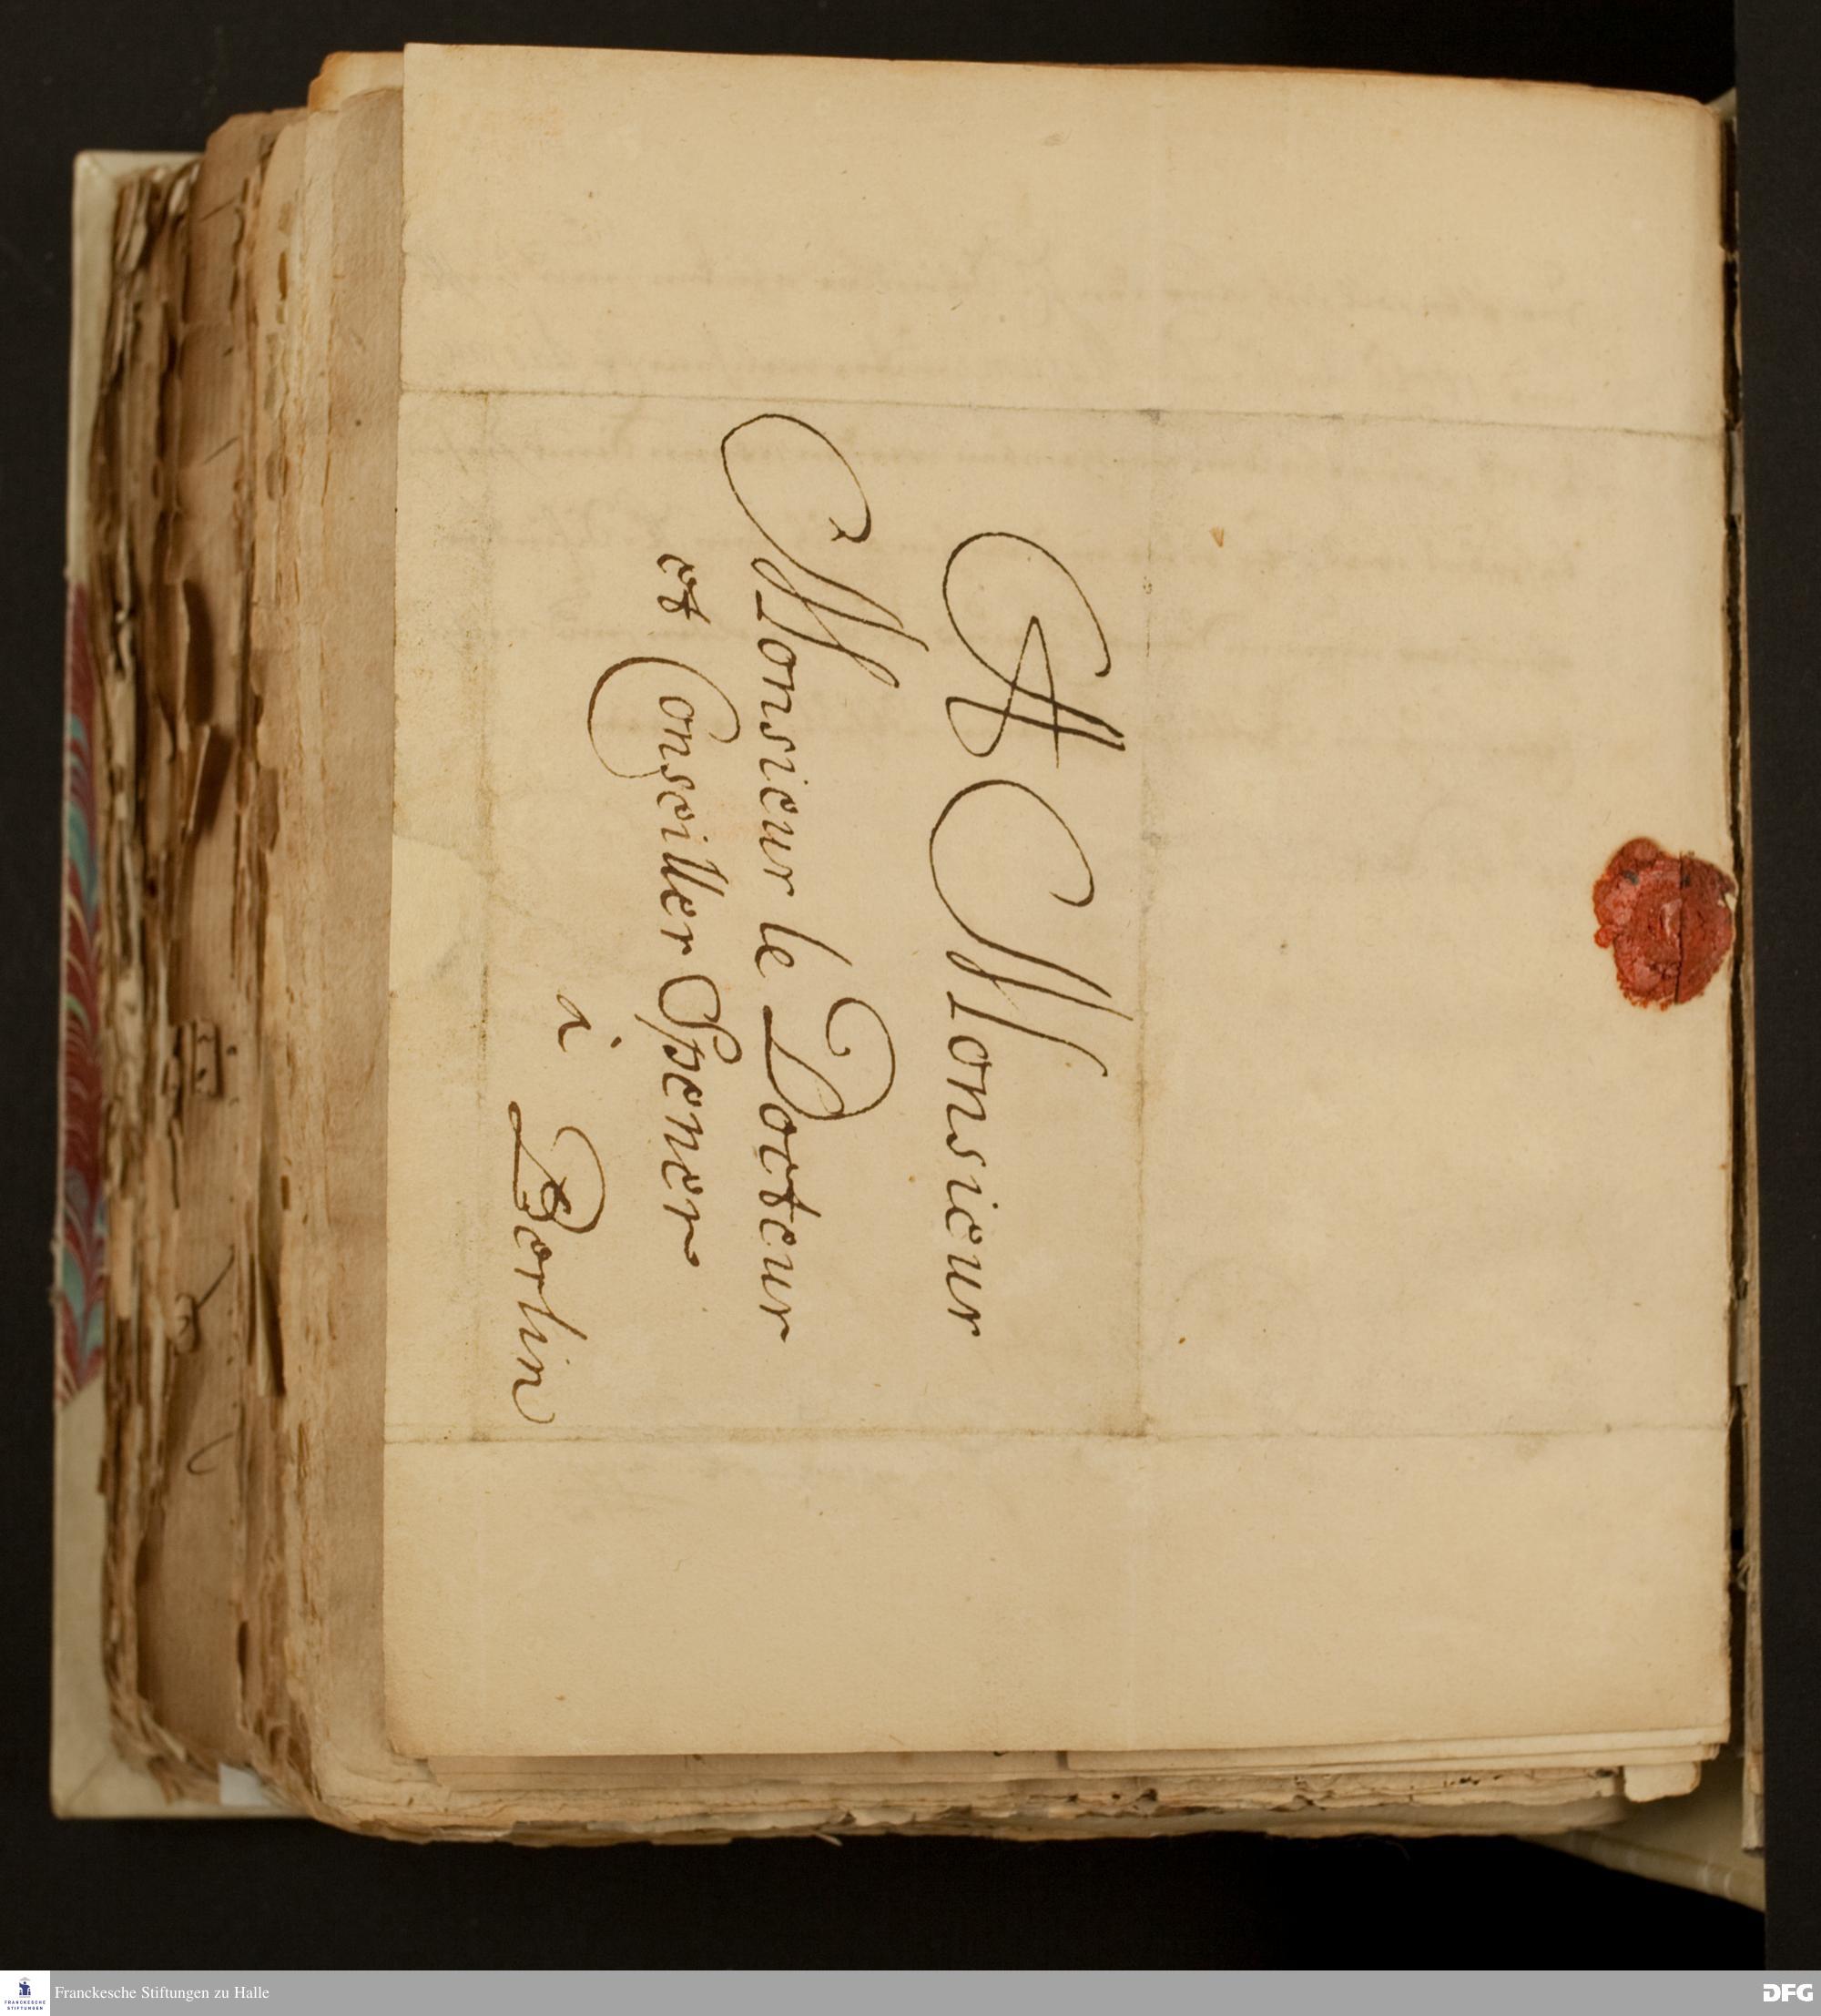 A Monsieur
Monsieur le Docteur
et Conseiller Spener
à Berlin
Franckesche Stiftungen zu Halle
FRANCKESCHE
STIFTUNGEN
DFG